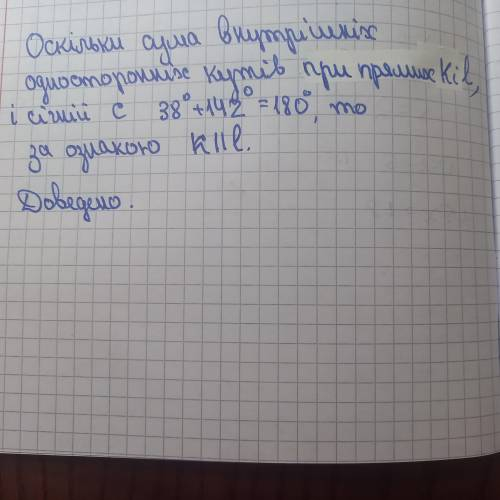 Оскільки сума внутрішніх
односторонніх кутів при прямих k і l,
і січній c 38°+142°=180°, то
за ознакою k||l.
Доведено.